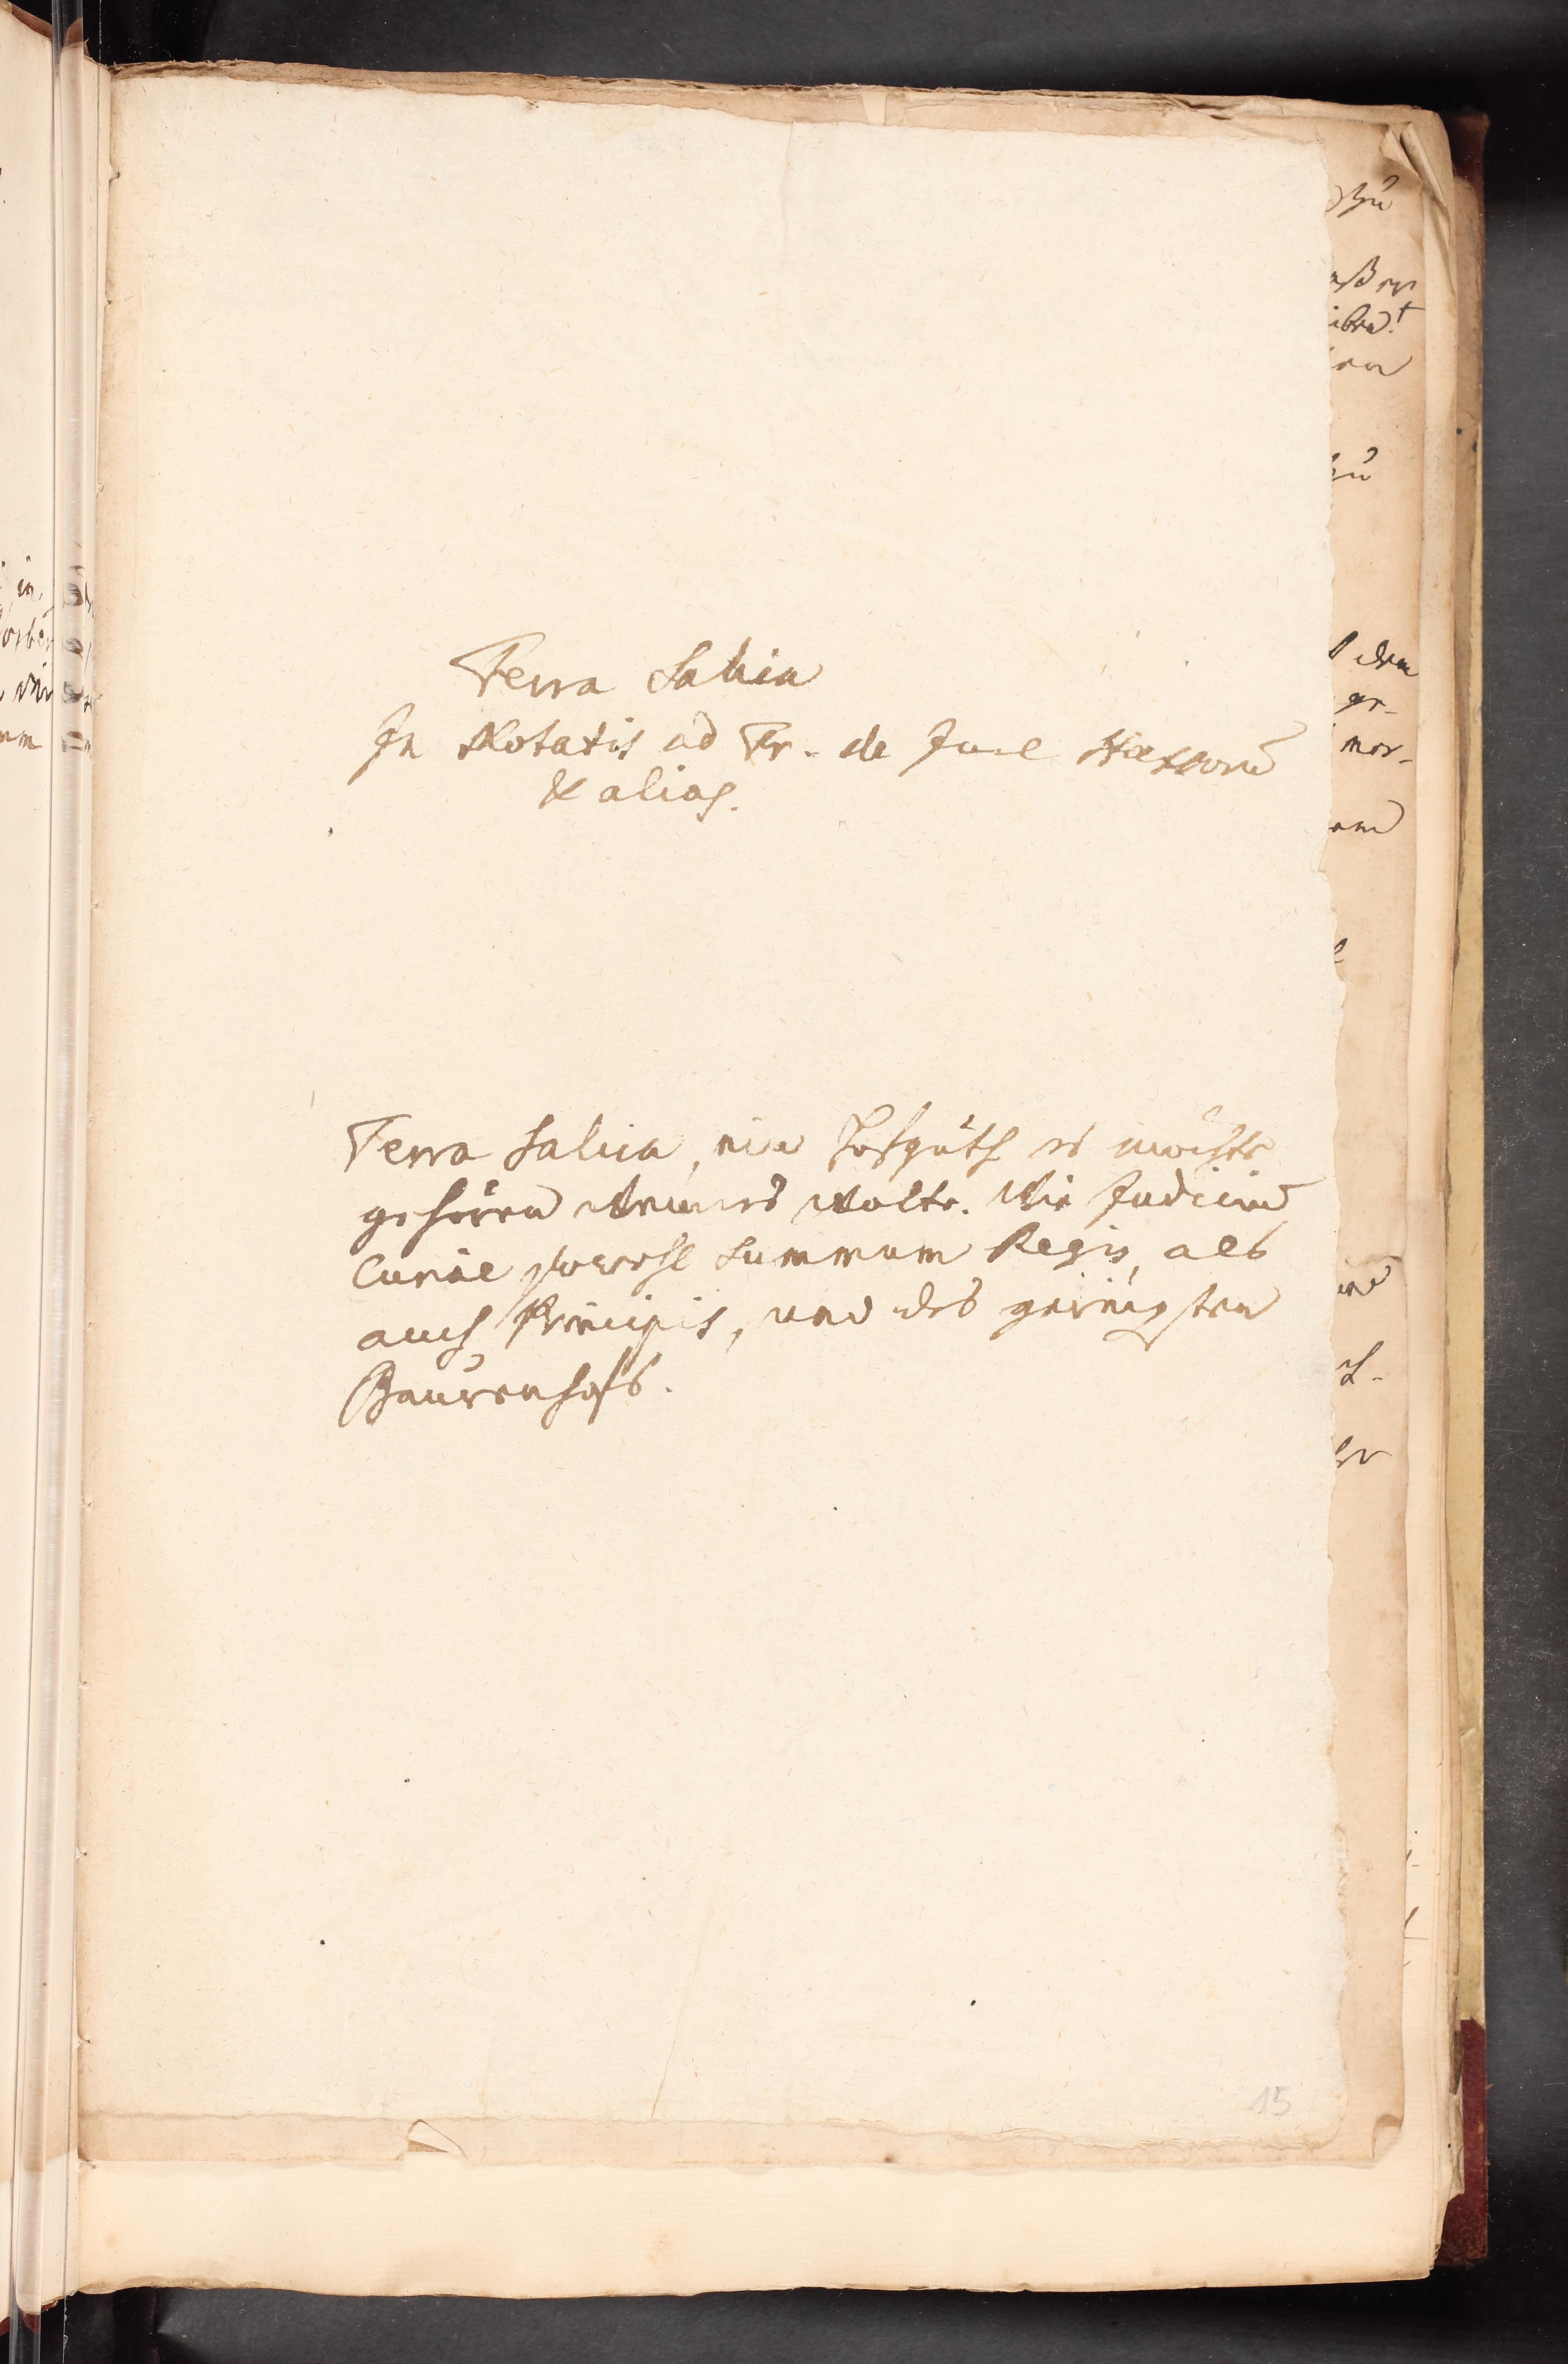 Terra Salica
In Notatis ad Tr. de Jure
& alias.
Terra Salica, ein Hofguth es möchte
gehören wem es wolte. Wie Judicium
Curiae sowohl Summum Regis, als
auch Principis, und des geringsten
Baurenhofs.
15